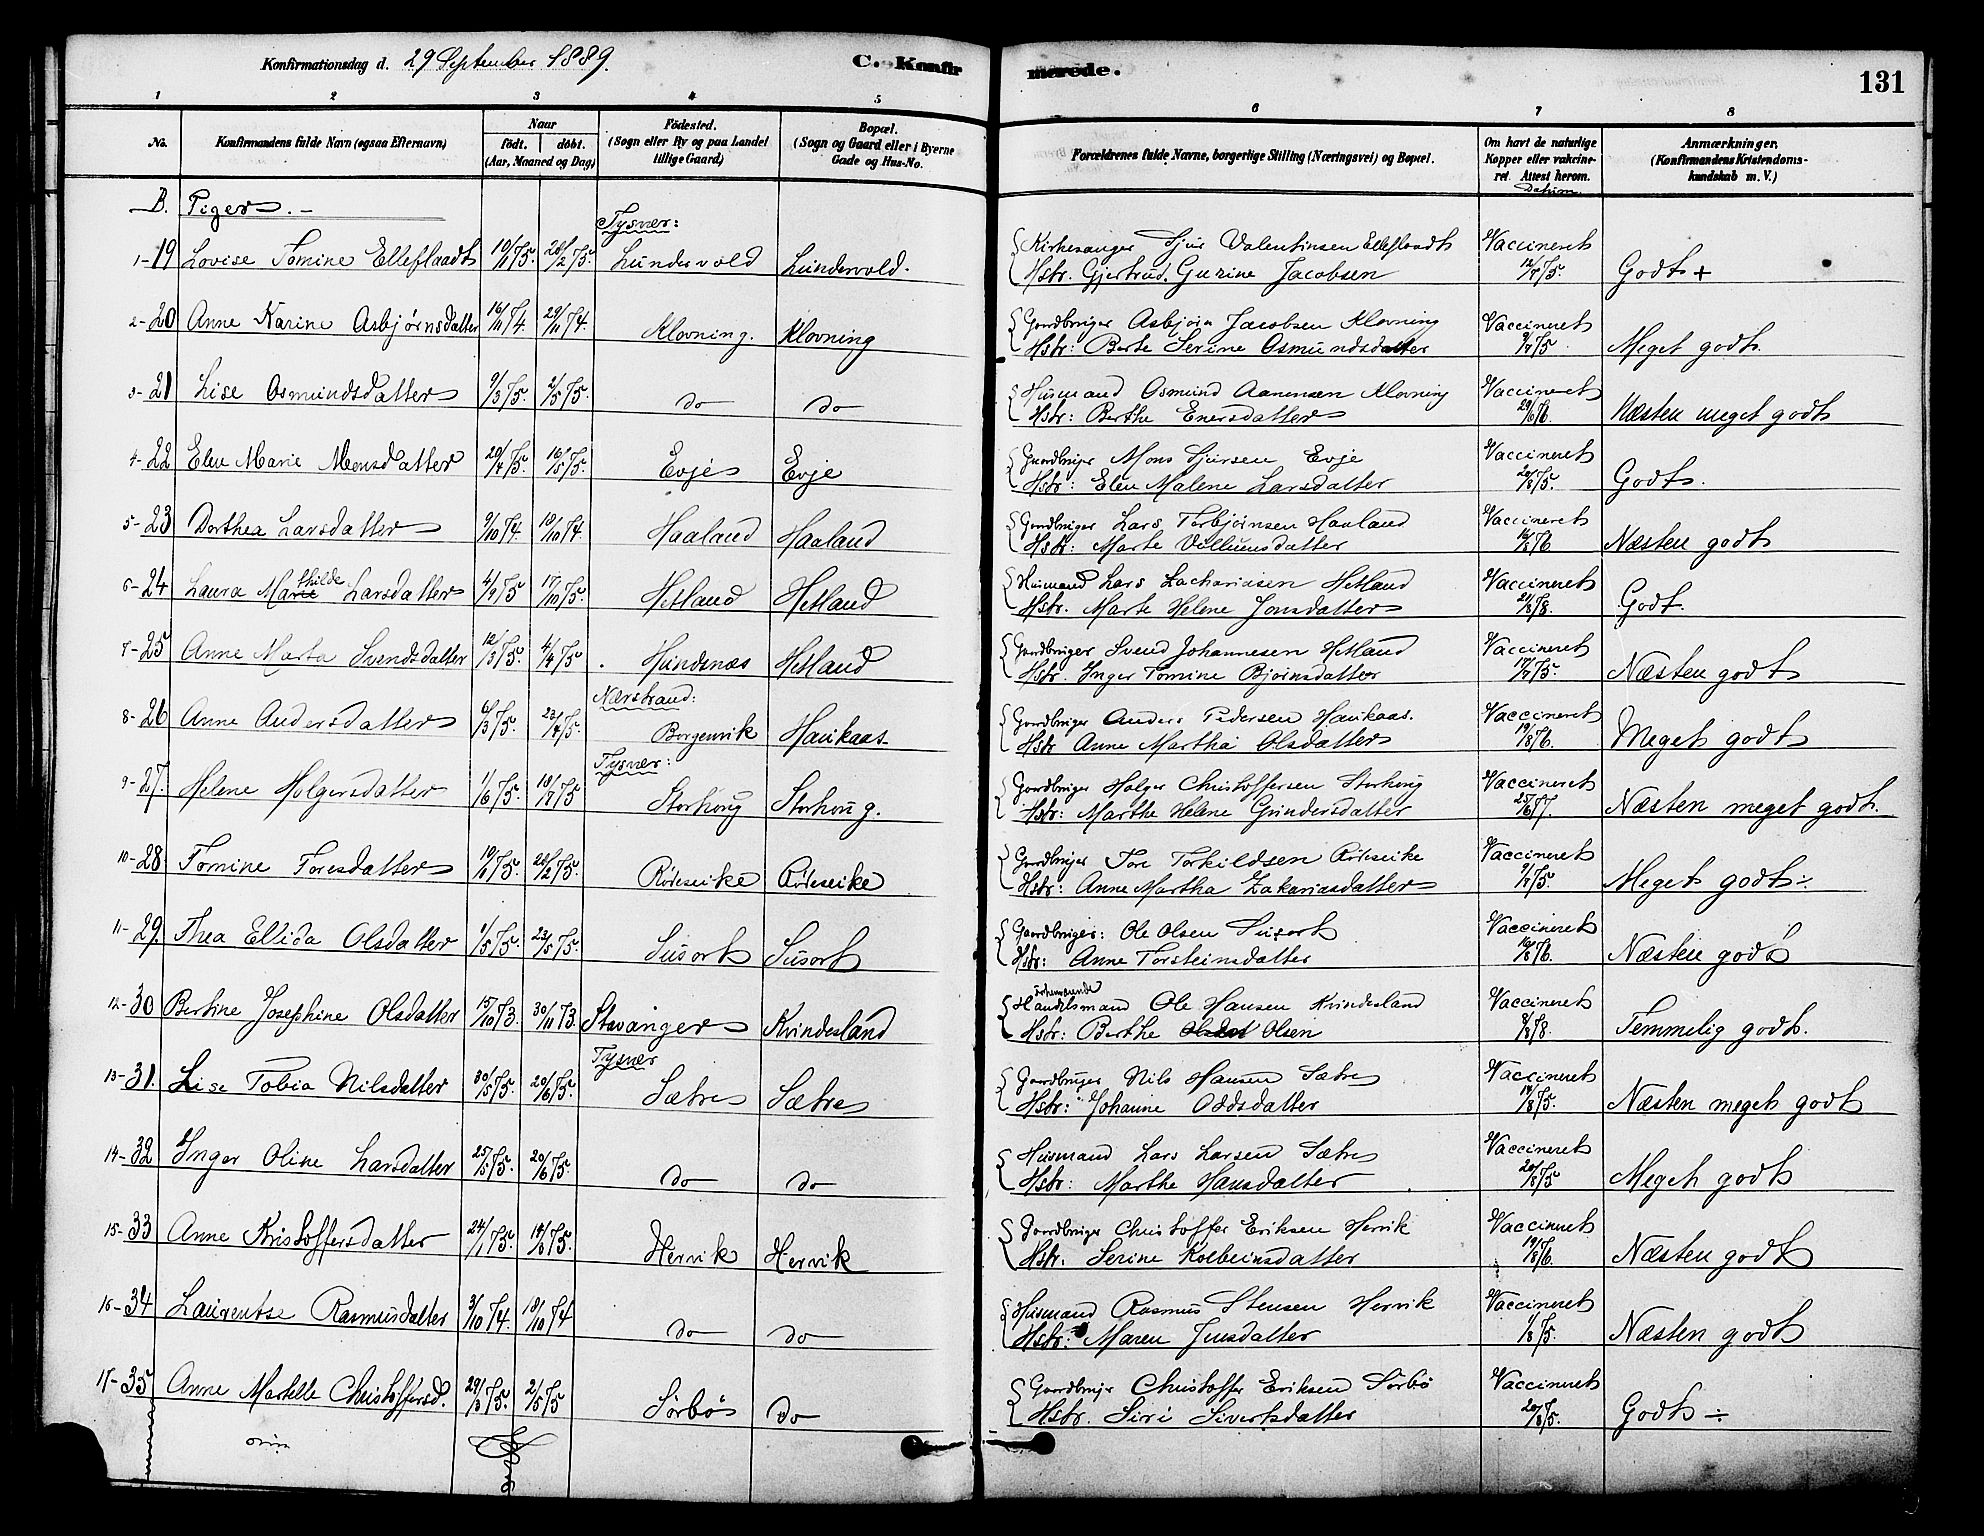 Konfirmationsdag d. 29 September 1889.
C. Konfirmerede.
131
1 2 3 4 5 6 7 8
No.
Konfirmandens fulde Navn (ogsaa Efternavn)
Naar
födt. döbt.
(Aar, Maaned og Dag)
Födested.
(Sogn eller By og paa Landet tillige Gaard)
Bopæl.
(Sogn og Gaard eller i Byerne Gade og Hus-No.
Forældrenes fulde Navne, borgerlige Stilling (Næringsvei) og Bopæl.
Om havt de naturlige Kopper eller vakcineret. Attest herom.
Datum.
Anmærkninger.
(Konfirmandens Kristendomskundskab m. V.)
B. Piger.
Tysvær:
1-19 Lovise Tomine Elleflaadt 10/1 75. 28/2 75. Lundervold Lundervold.
Kirkesanger Sjur Valentinsen Elleflaadt Vaccineret
Hstr. Gjertrud Gurine Jacobsen 12/7 75. Godt +
2-20 Anne Karine Asbjørnsdatter 16/11 74. 29/11 74. Klovning. Klovning
Gaardbruger Asbjørn Jacobsen Klovning Vaccineret
Hstr: Berte Serine Osmundsdatter 9/7 75. Meget godt.
3-21 Lise Osmundsdatter 9/3 75. 2/5 75. do do
Husmand Osmund Aanensen Klovning Vaccineret
Hstr: Berthe Enersdatter 29/6 76. Næsten meget godt
4-22 Elen Marie Monsdatter 20/4 75. 16/5 75. Evje Evje
Gaardbruger Mons Sjursen Evje Vaccineret
Hstr: Elen Malene Larsdatter 20/8 75. Godt.
5-23 Dorthea Larsdatter 9/10 74. 18/10 74. Haaland Haaland
Gaardbruger Lars Torbjørnsen Haaland Vaccineret
Hstr: Marte Villumsdatter 76 Næsten godt
6-24 Laura Mathilde Larsdatter 4/9 75 17/10 75. Hetland Hetland
Husmand Lars Zachariasen Hetland Vaccineret
Hstr. Marte Helene Jonsdatter 21/8 78. Godt.
7-25 Anne Marta Svendsdatter 12/3 75. 4/4 75. Hundsnæs Hetland
Gaardbruger Svend Johannesen Hetland Vaccineret
Hstr. Inger Tomine Bjørnsdatter 17/7 75. Næsten godt
Nærstrand:
8-26 Anne Andersdatter 6/3 75. 23/4 75. Borgenvik Haukaas
Gaardbruger Anders Pedersen Haukaas. Vaccineret
Hstr Anne Martha Olsdatter 19/8 76. Meget godt
Tysvær:
9-27. Helene Holgersdatter 1/6 75. 18/7 75 Storhoug Storhoug.
Gaardbruger Holger Christoffersen Storhoug Vaccineret
Hstr: Marthe Helene Gundersdatter 25/6 77. Næsten meget godt.
10-28 Tomine Toresdatter 10/1 75. 28/2 75. Röleseike Röleseike
Gaardbruger Tore Torkildsen Röleseike Vaccineret
Hstr: Anne Martha Zakariasdatter 9/7 75. Meget godt ÷
11-29. Thea Ellida Olsdatter 1/5 75. 23/5 75. Susort Susort
Gaardbruger: Ole Olsen Susort Vaccineret
Hstr: Anne Torsteinsdatter 18/8 76. Næsten godt
12-30 Bertine Josephine Olsdatter 15/10 73. 30/11 73. Stavanger Kvindesland
Handelsmand Ole Hansen Kvindesland Vaccineret
Hstr: Berthe Olsdat Olsen 8/8 78. Temmelig godt.
Tysvær
13-31. Lise Tobia Nilsdatter 30/5 75. 20/6 75. Sætre Sætre
Gaardbruger Nils Hansen Sætre Vaccineret
Hstr: Johanne Oddsdatter 14/8 75. Næsten meget godt
14-32 Inger Oline Larsdatter 25/5 75. 20/6 75. do do
Husmand Lars Larsen Sætre Vaccineret
Hstr: Marthe Hansdatter 20/8 75 Meget godt
15-33 Anne Kristoffersdatter 24/1 75. 14/3 75. Hervik Hervik
Gaardbruger Christoffer Eriksen Hervik Vaccineret
Hstr. Serine Kolbeinsdatter 19/8 76. Næsten godt
16-34 Laugentse Rasmusdatter 3/10 74. 18/10 74 do do
Husmand Rasmus Stensen Hervik Vaccineret
Hstr: Maren Jensdatter 1/8 75. Næsten godt
17-35 Anne Martelle Christoffersd. 29/3 75. 2/5 75 Sörbö do
Gaardbruger Christoffer Eriksen Sörbö Vaccineret
Hstr. Siri Sivertsdatter 20/8 75. Godt ÷